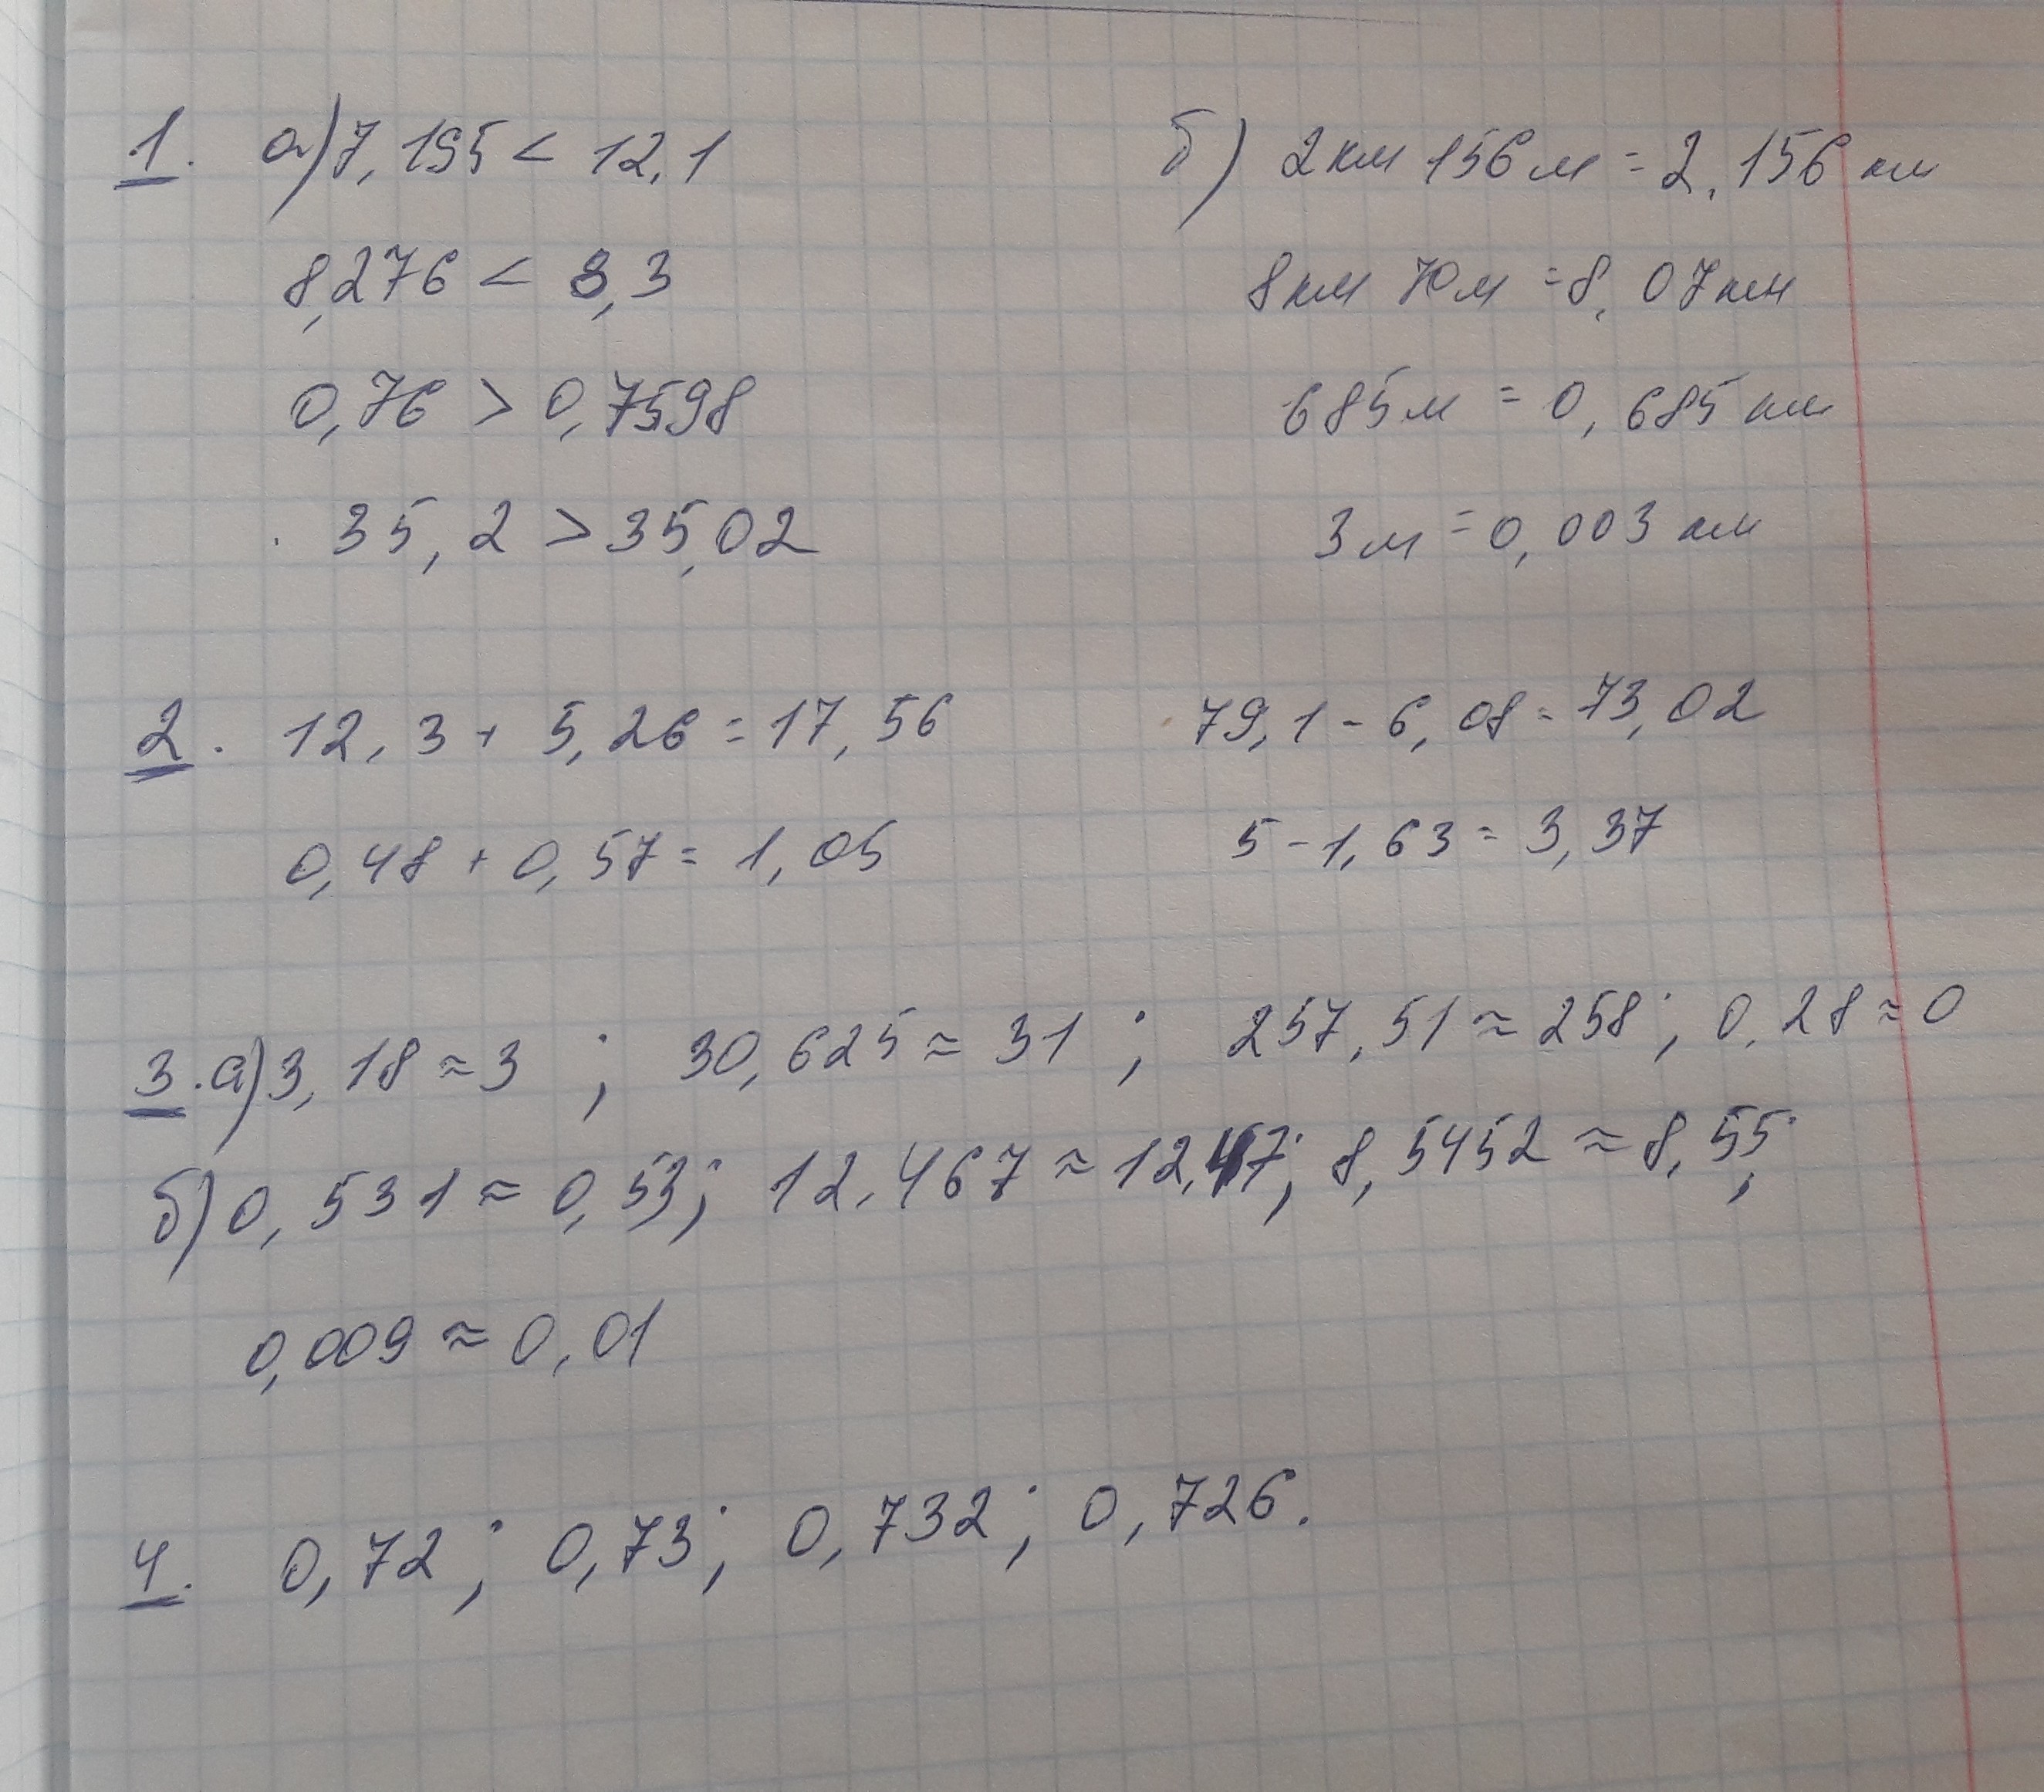 1. а) 7,195 < 12,1
8,276 < 8,3
0,76 > 0,7598
35,2 > 35,02
б) 2км 156м = 2,156 км
8км 70м = 8,07км
685м = 0,685 км
3м = 0,003 км
2. 12,3 + 5,26 = 17,56
0,48 + 0,57 = 1,05
79,1 - 6,08 = 73,02
5 - 1,63 = 3,37
3. а) 3,18 ≈ 3 ; 30,625 ≈ 31 ; 257,51 ≈ 258 ; 0,28 ≈ 0
б) 0,531 ≈ 0,53 ; 12,467 ≈ 12,47 ; 8,5452 ≈ 8,55 ;
0,009 ≈ 0,01
4. 0,72 ; 0,73 ; 0,732 ; 0,726.